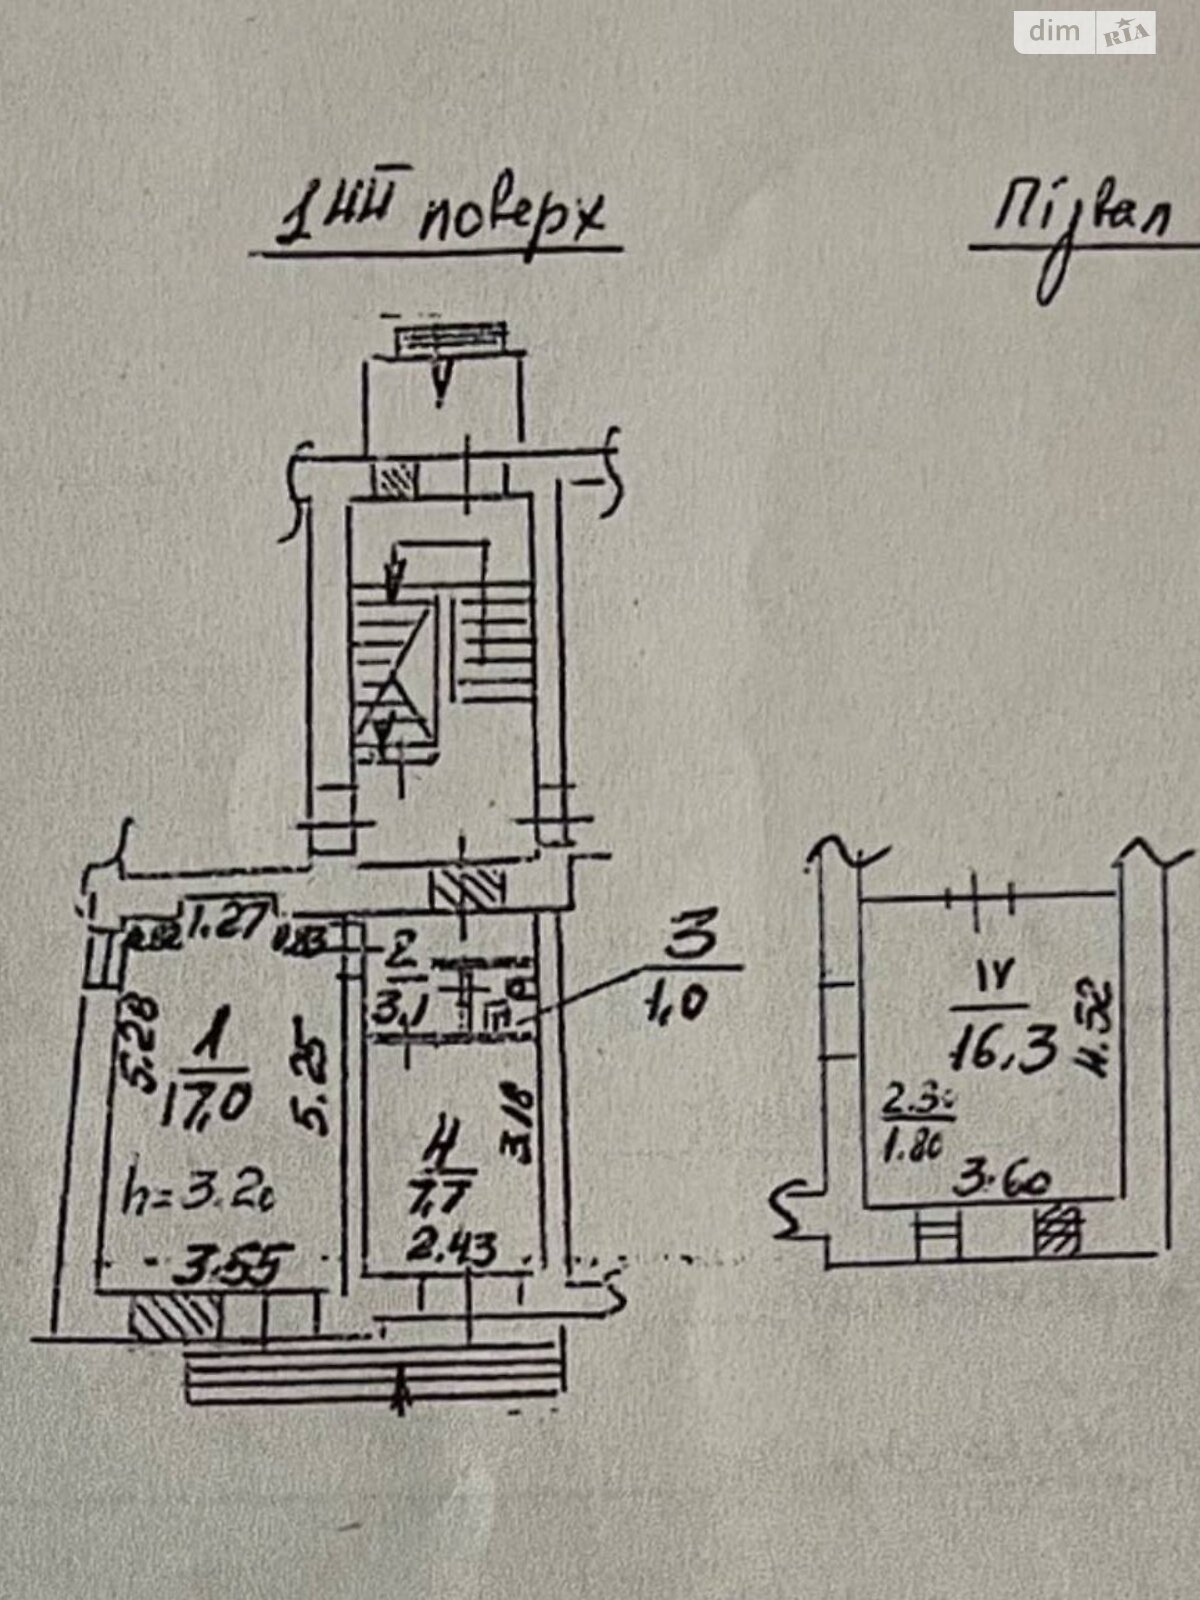 dim RIA
1ый поверх
Підвал
1.27
0.82
0.83
2
3,1
3
1,0
5.28
1
17,0
5.25
h=3.20
3.55
4
7,7
3.18
2.43
IV
16,3
4.52
2.30
1.80
3.60